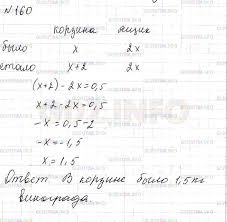 N 160
корзина ящик
было x 2x
стало x+2 2x
(x+2) - 2x = 0,5
x+2-2x = 0,5
-x = 0,5-2
-x = -1,5
x = 1,5
Ответ: В корзине было 1,5 кг
винограда